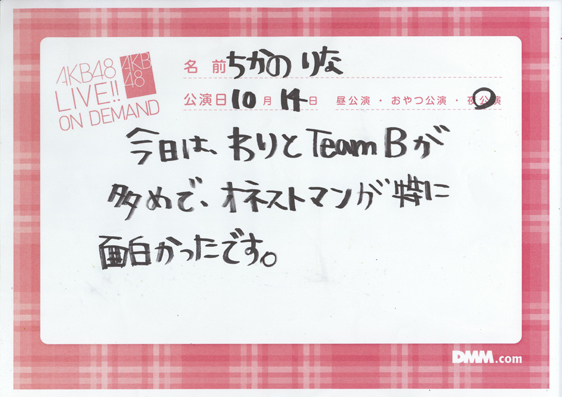 AKB48
LIVE!!
ON DEMAND
AKB
48
名 前 ちかの りな
公演日 10 月 14 日 昼公演 ・ おやつ公演 ・ 夜公演
今日は、わりと Team B が
多めで、オネストマンが特に
面白かったです。
DMM.com